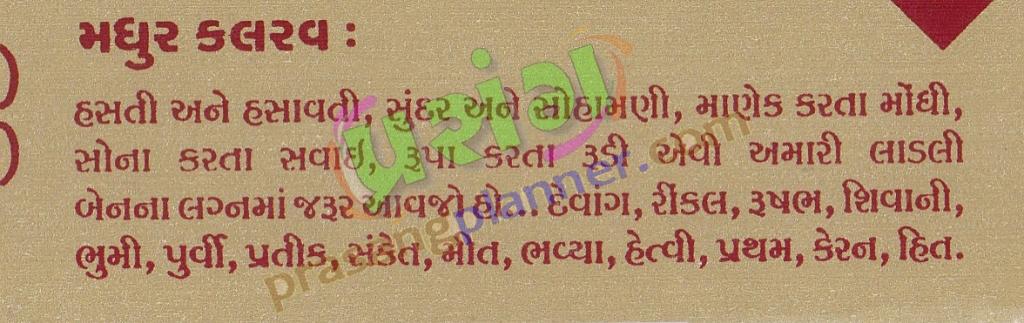 મધુર કલરવ :
હસતી અને હસાવતી, સુંદર અને સોહામણી, માણેક કરતા મોંઘી,
સોના કરતા સવાઈ, રૂપા કરતા રૂડી એવી અમારી લાડલી
બેનના લગ્નમાં જરૂર આવજો હો... દેવાંગ, રીંકલ, રૂષભ, શિવાની,
ભુમી, પુર્વી, પ્રતીક, સંકેત, મીત, ભવ્યા, હેત્વી, પ્રથમ, કેરન, હિત.
પ્રસંગ
prasangplanner.com